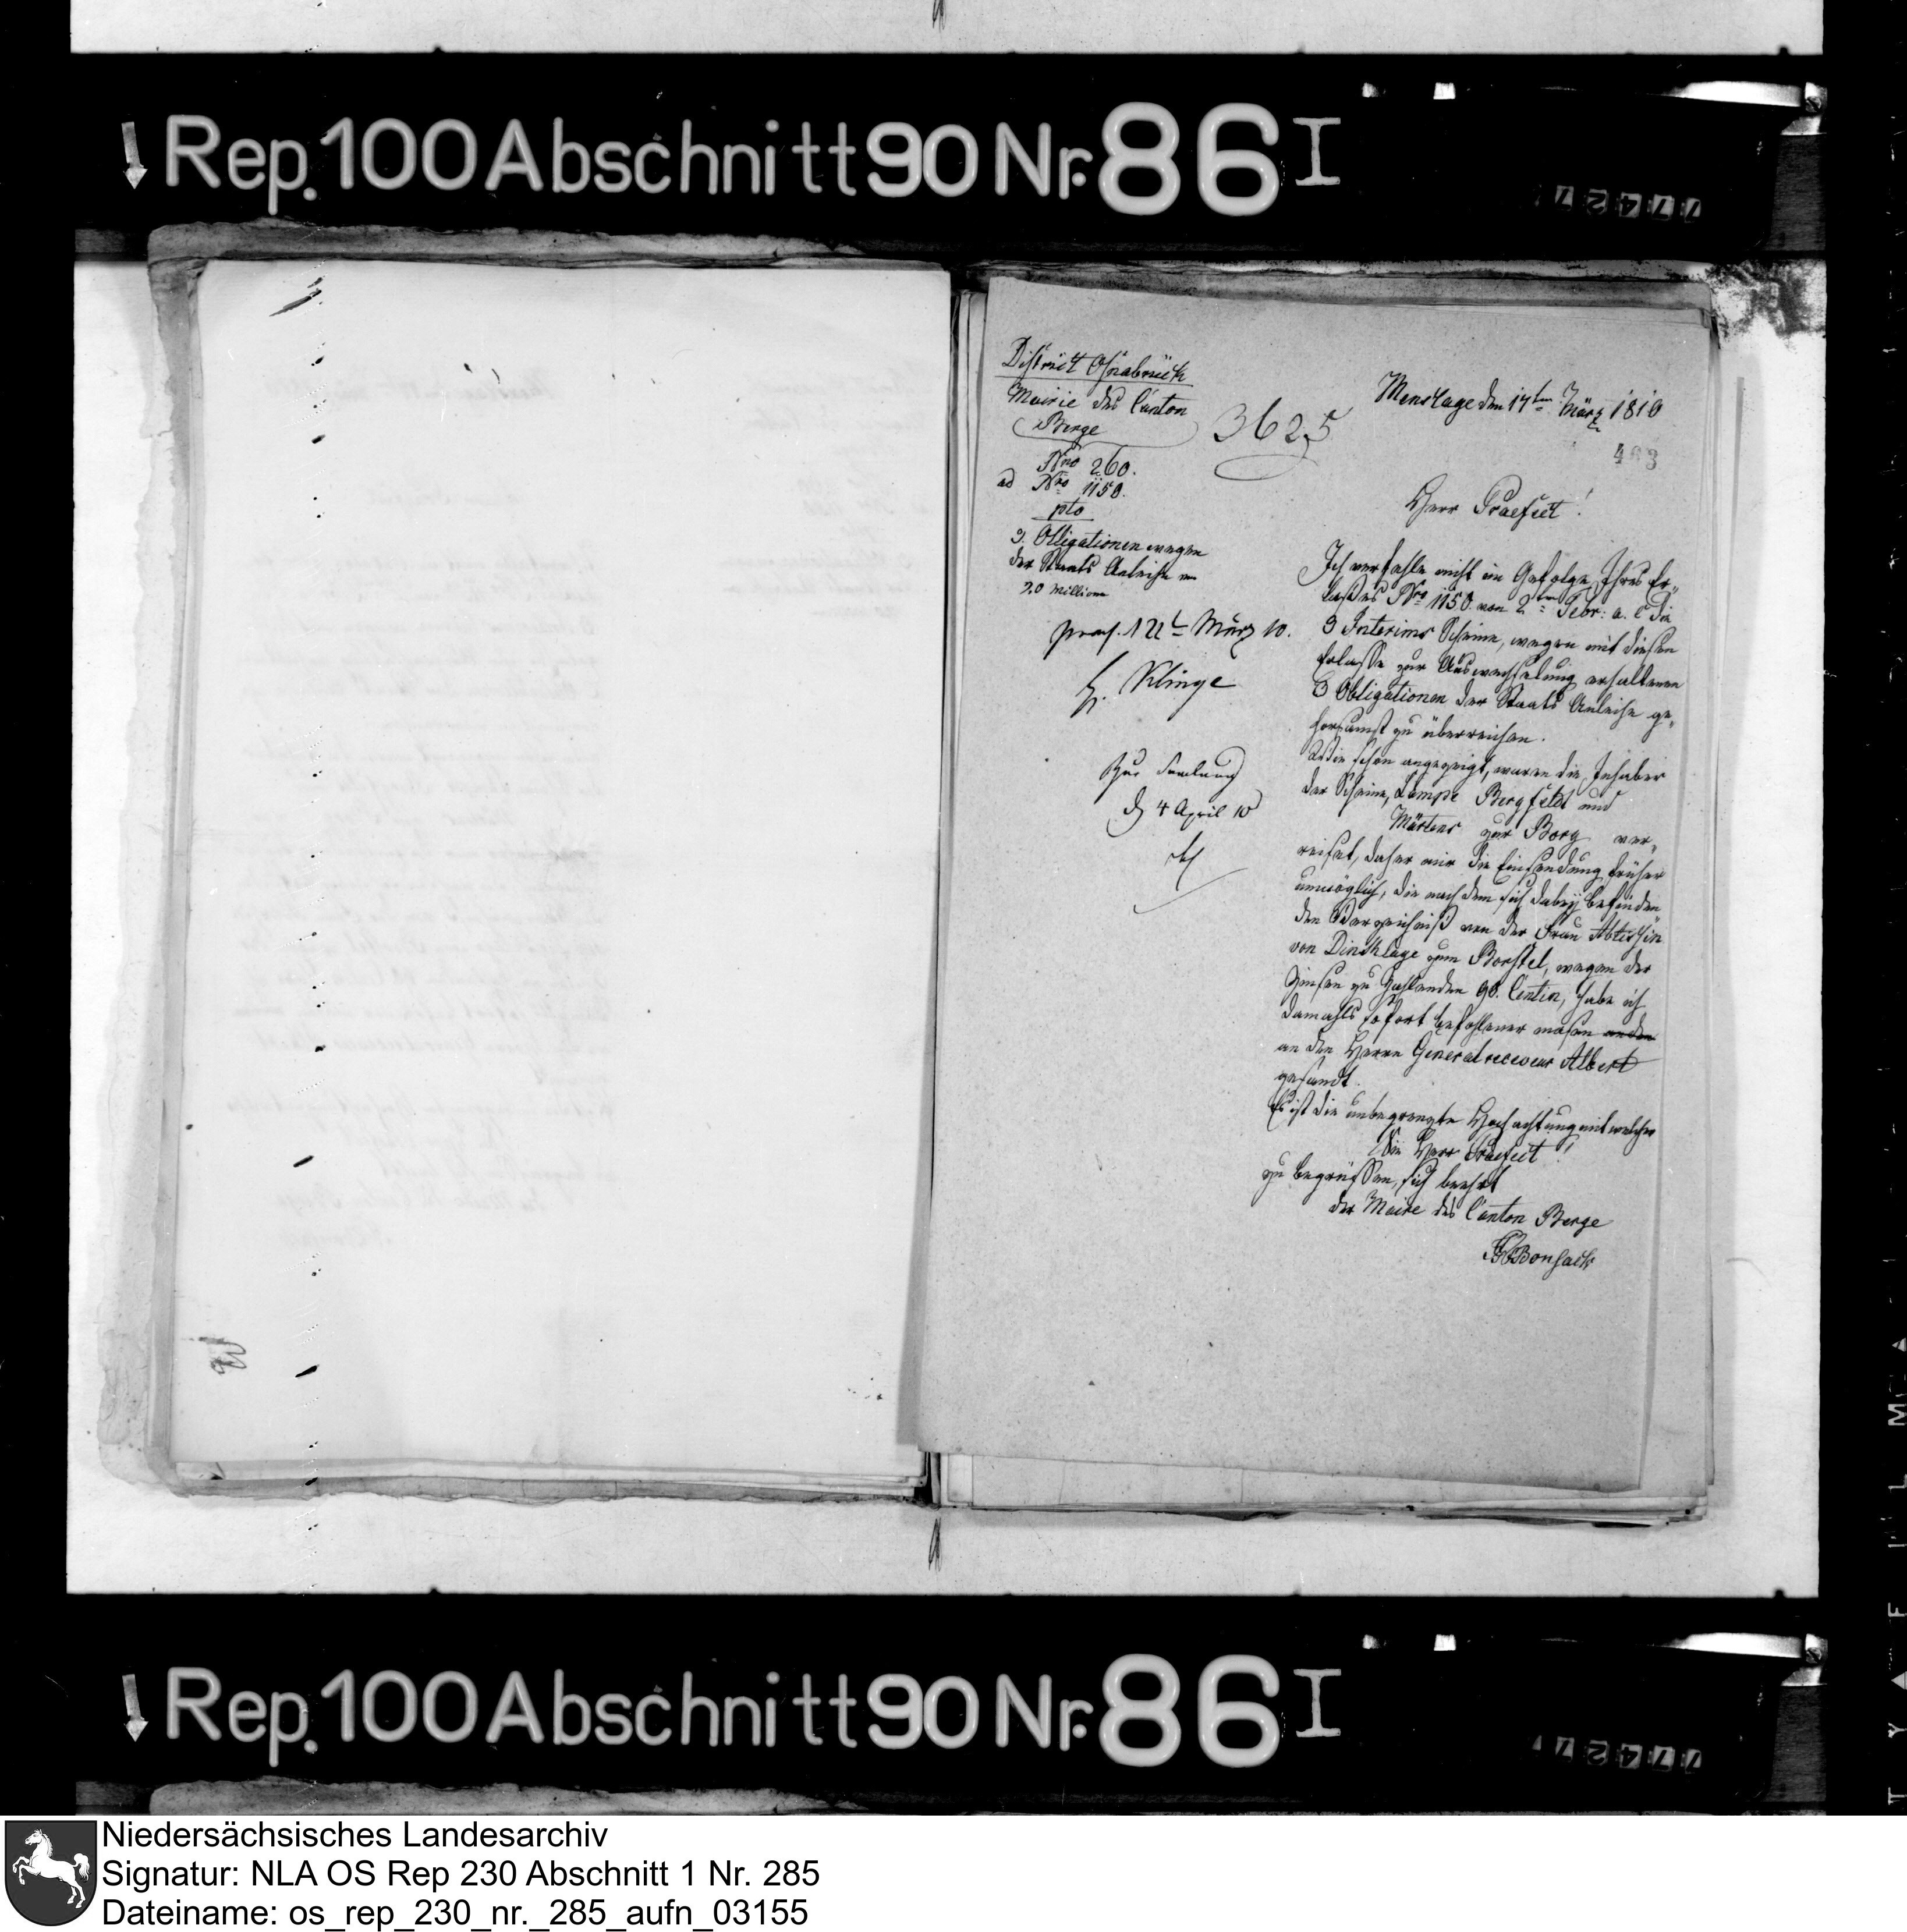 Rep. 100 Abschnitt 90 Nr. 86 I
77427
District Osnabrück
Mairie des Canton
Berge
Nro 260.
ad Nro 1150.
pto
3. Obligationen wegen
der Staats Anleihe
20 Millionen
praes. 22t März 10.
Klinge
Zur Samlung
d 4 April 10
3625
Menslage den 17ten März 1810
463
Herr Praefect!
Ich verfehle nicht im Gefolge Ihres Er„
laßes Nro 1150. von 2ten Febr: a. c die
3 Interims Scheine, wegen mit diesen
Erlasse zur Auswechselung erhaltenen
3 Obligationen der Staats Anleihe ge„
horsamst zu überreichen.
Wie schon angezeigt, waren die Inhaber
der Scheine, Lampe Bergfeld und
Märtens zur Borg ver„
reiset, daher mir die Einsendung früher
unmöglich, die nach dem sich dabeÿ befinden
den Verzeichniß von der Frau Abtissin
von Dincklage zum Börstel, wegen der
Zinsen zu Zahlenden 90. Centim, habe ich
damahls sofort befohlener masen
an den Herrn Generalreceveur Albert
gesandt.
Es ist die unbegrenzte Hochachtung mit welcher
Sie Herr Praefect!
zu begrüssen, sich beehrt
der Maire des Canton Berge
Bonsack
Rep. 100 Abschnitt 90 Nr. 86 I
77427
Niedersächsisches Landesarchiv
Signatur: NLA OS Rep 230 Abschnitt 1 Nr. 285
Dateiname: os_rep_230_nr._285_aufn_03155